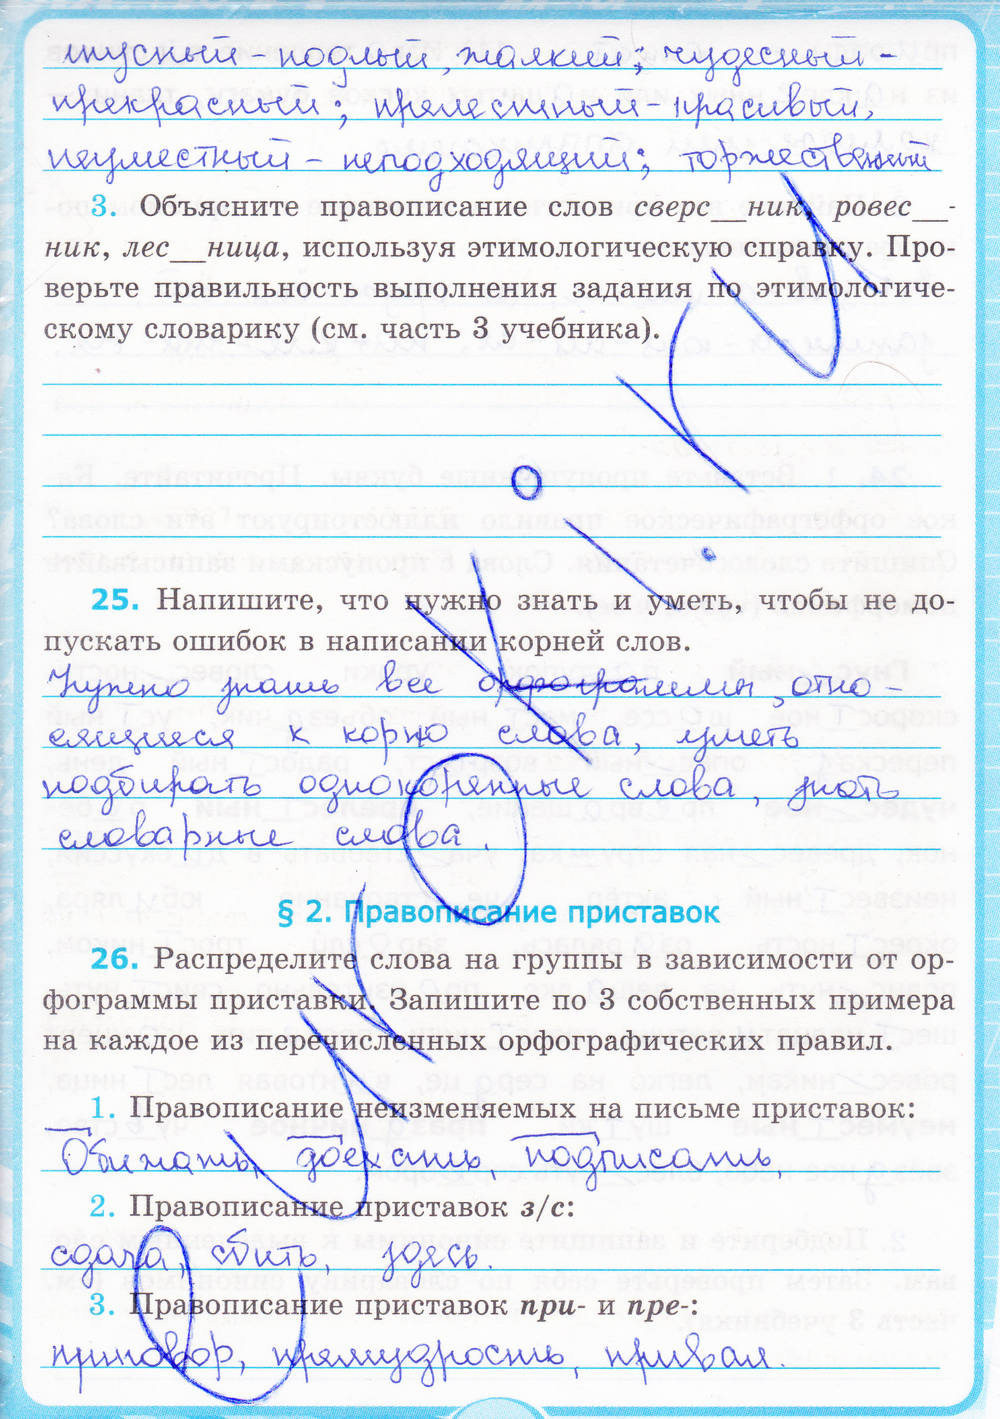 гнусный - подлый, жалкий; чудесный -
прекрасный; прелестный - красивый,
неуместный - неподходящий; торжественный
3. Объясните правописание слов сверс__ник, ровес__-
ник, лес__ница, используя этимологическую справку. Про-
верьте правильность выполнения задания по этимологиче-
скому словарику (см. часть 3 учебника).
25. Напишите, что нужно знать и уметь, чтобы не до-
пускать ошибок в написании корней слов.
Нужно знать все орфограммы, отно-
сящиеся к корню слова, уметь
подбирать однокоренные слова, знать
словарные слова.
§ 2. Правописание приставок
26. Распределите слова на группы в зависимости от ор-
фограммы приставки. Запишите по 3 собственных примера
на каждое из перечисленных орфографических правил.
1. Правописание неизменяемых на письме приставок:
Обежать, доехать, подписать,
2. Правописание приставок з/с:
сдача, сбить, здесь.
3. Правописание приставок при- и пре-:
приговор, премудрость, привал.